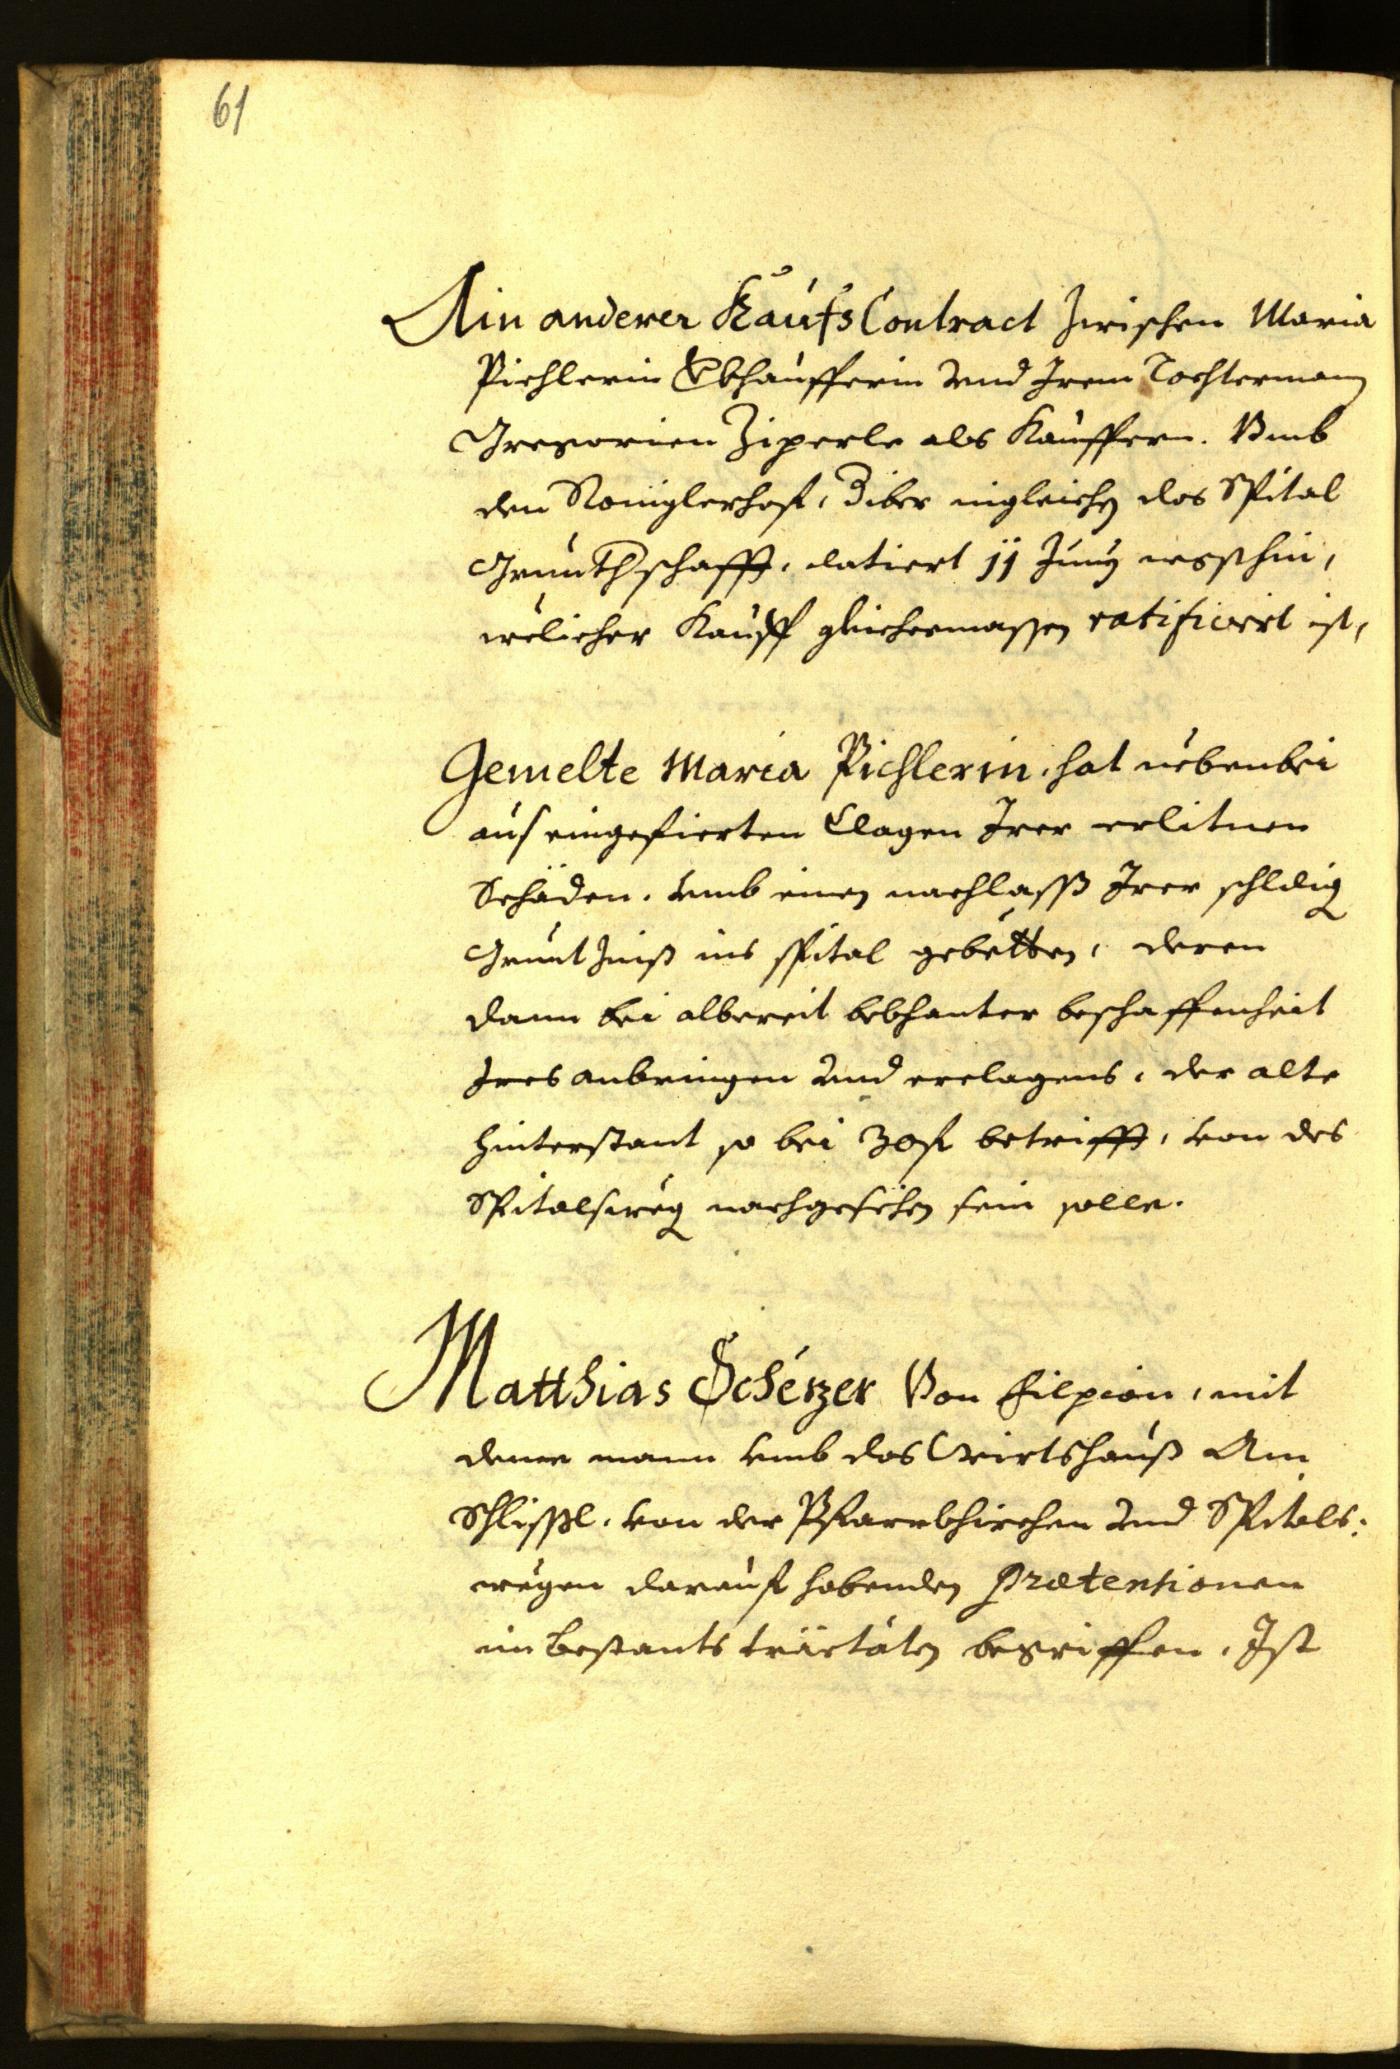 61
Ain anderer Kaufs Contract zwischen Maria
Pichlerin Verkhaufferin vnd Irem Tochterman
Gregorien Ziperle als Kauffern. Vmb
den hof, Diber ingleichen des Spital
Gruntherschafft, datiert 11 Juny ,
welicher Kauff gleichermassen ratificiert ist,
Gemelte Maria Pichlerin, hat nebenbei
auf eingefierten Clagen Irer erlitnen
Schäden, vmb einen nachlaß Irer schldig
Grunt Zinß ins spital gebetten, deren
dann bei albereit bekhanter beschaffenheit
Ires anbringen vnd erclagens, der alte
hinterstant so bei 30 fl betrifft, von des
Spitalsweg nachgesehen sein solle.
Matthias Scherzer Von , mit
deme mann vmb das Wirtshauß Am
Schlissl, von der Pfarrkhirchen vnd Spitals:
wegen darauf habenden Prætentionen
in Bestants träctäten begriffen, Ist